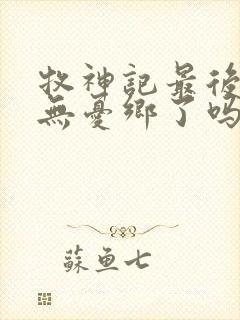 牧神記最後
無憂鄉了嗎
蘇魚七